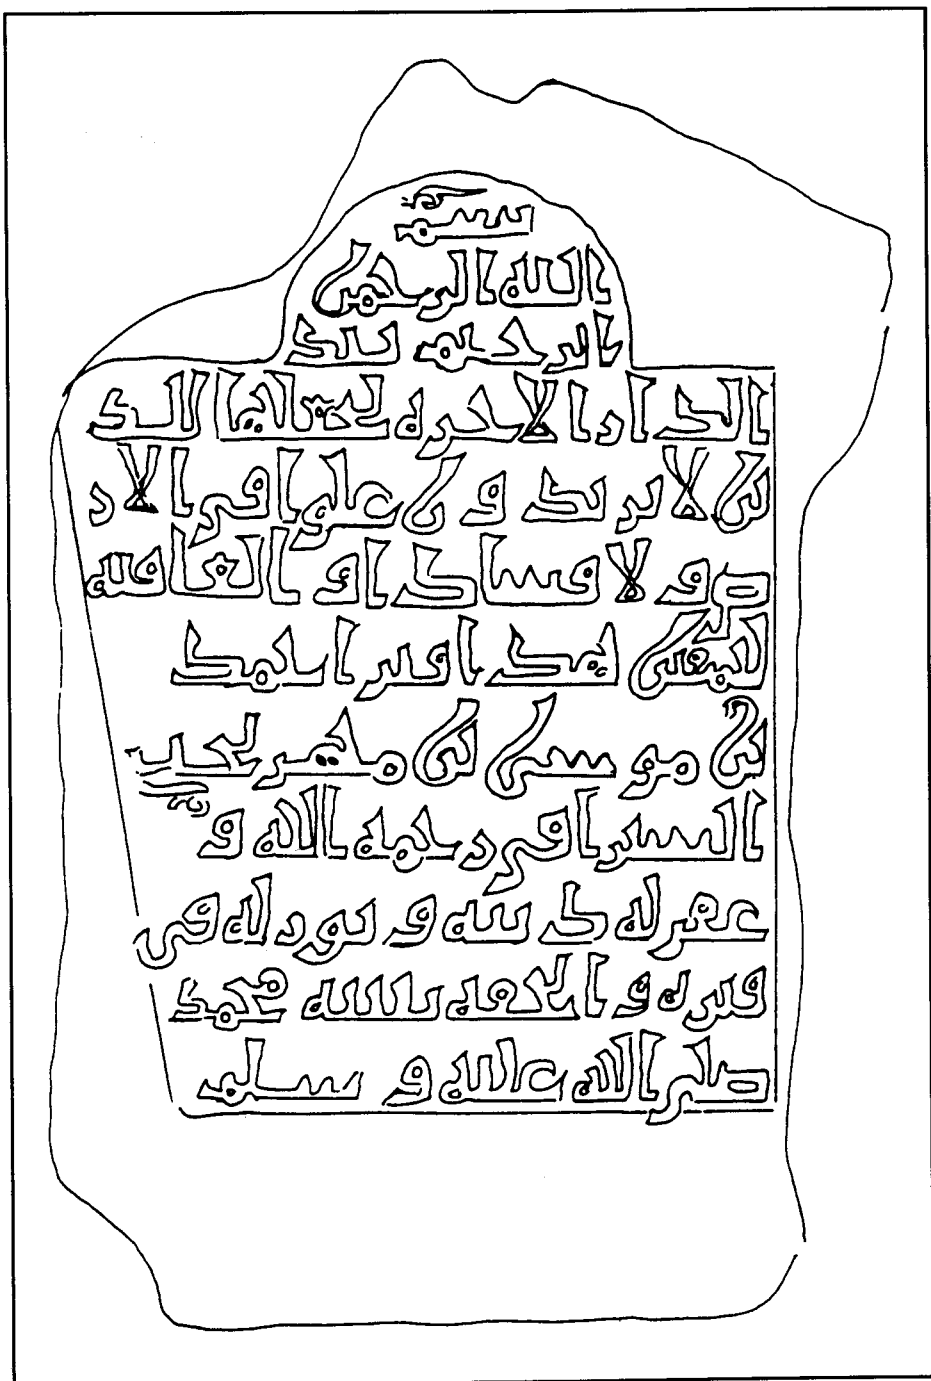 بسم
الله الرحمن
الرحيم تلك
الدار الاخره نجعلها للذ
ين لا يريدون علوا في الار
ض ولا فسادا و العاقبه
للمتقين هذا قبر احمد
بن موسى بن
السرافي رحمه الله و
غفر له ذنبه و نور له في
قبره و الحقه بنبيه محمد
صلى الله عليه و سلم